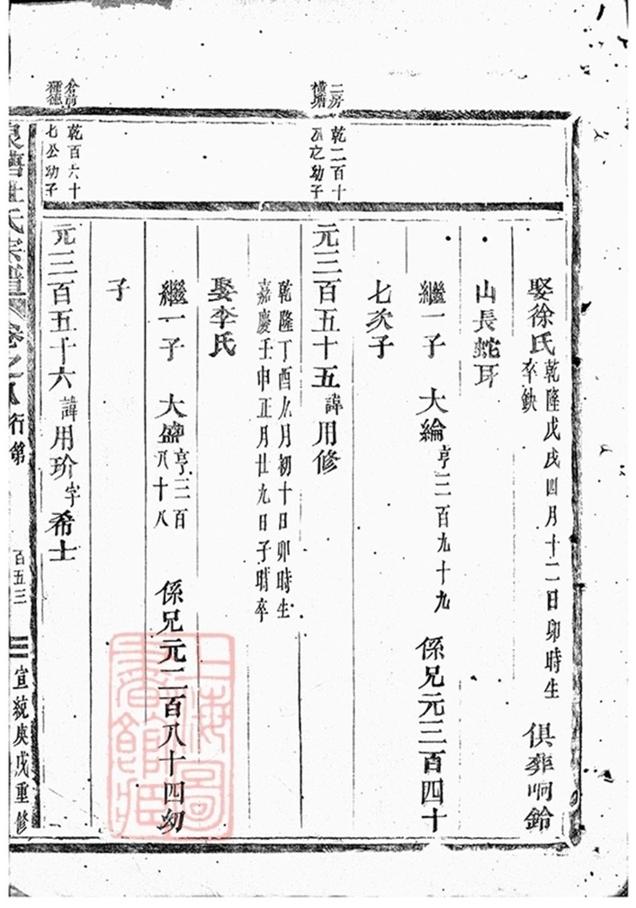 二房
橫塘
乾二百十
之幼子
娶徐氏 乾隆戊戌四月十二日卯時生 俱葬响鈴
卒缺
山長蛇耳
繼一子 大綸 亨三百九十九 係兄元三百四十
七次子
元三百五十五 諱用修
乾隆丁酉九月初十日卯時生
嘉慶壬申正月廿九日子時卒
娶李氏
繼一子 大盛 亨三百八十八 係兄元二百八十四幼
子
倉前
種德
乾百六十
七公幼子
元三百五十六 諱用玠 字希士
杜氏宗譜 卷之八 行第 百五三 宣統庚戌重修
上海圖書館藏